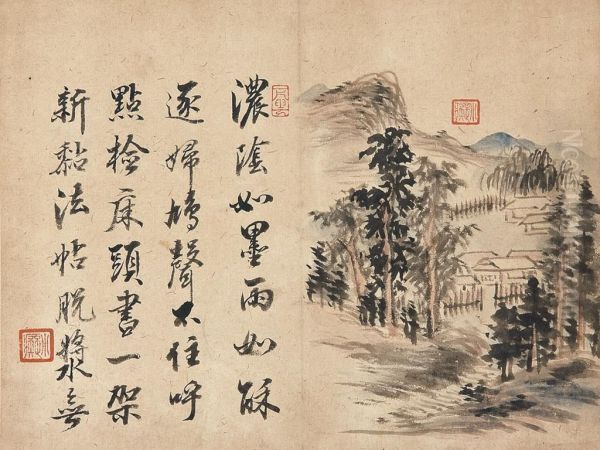 濃陰如墨雨如酥
逐婦鳩聲不住呼
點檢床頭書一架
新黏法帖脫漿無